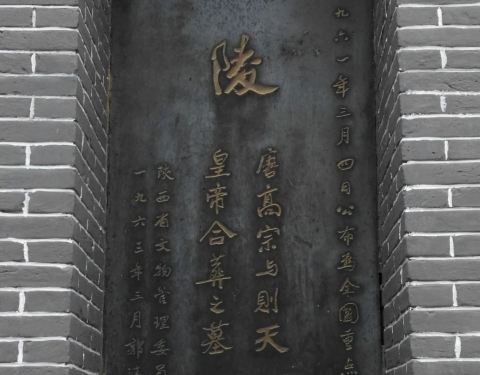 九六一年三月四日公布为全国重点
陵
唐高宗与则天
皇帝合葬之墓
陕西省文物管理委员
一九六三年三月郭沫